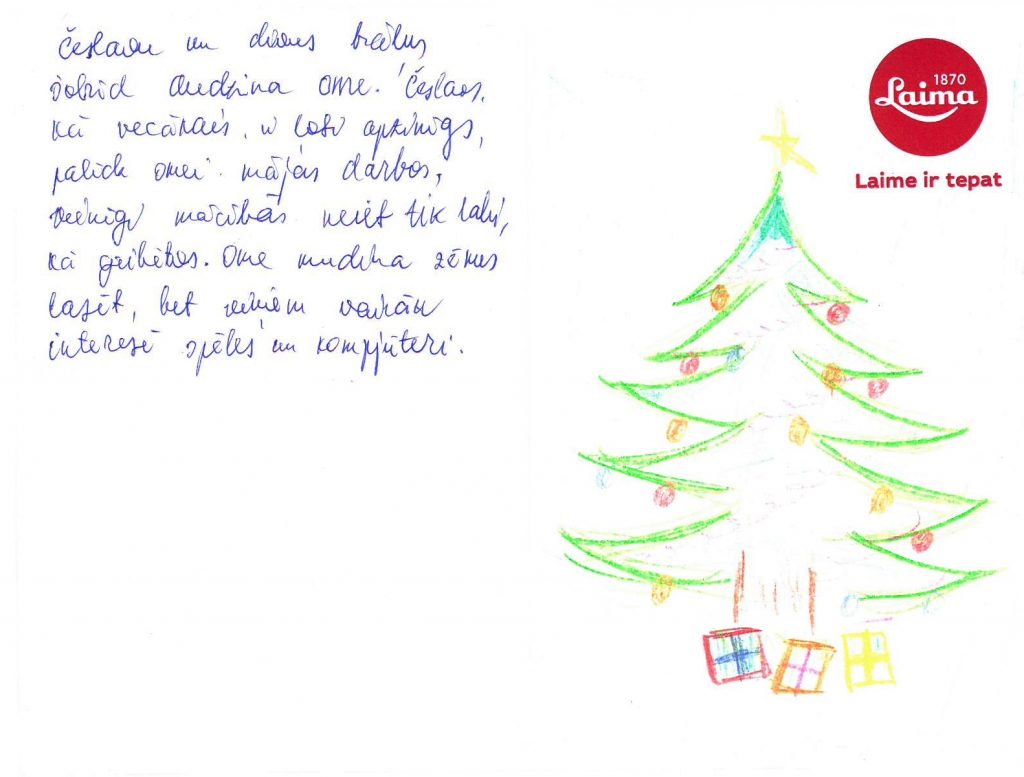 Česlavu un divus brāļus
šobrīd audzina ome. Česlavs,
kā vecākais, ir ļoti apzinīgs,
palīdz omei mājas darbos,
vienīgi mācībās neiet tik labi,
kā gribētos. Ome mudina zēnus
lasīt, bet viņiem vairāk
interesē spēles un kompjūteri.
1870
Laima
Laime ir tepat